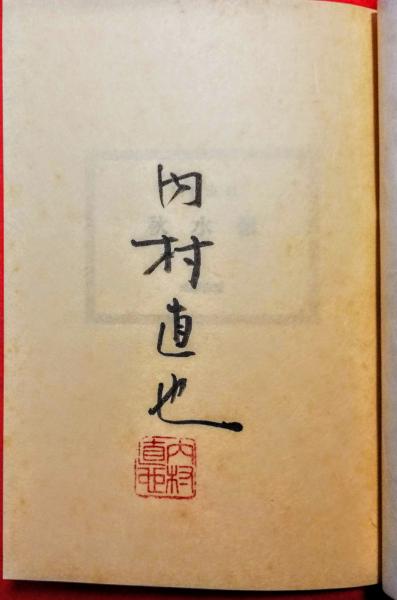 内村直也
内村
直也